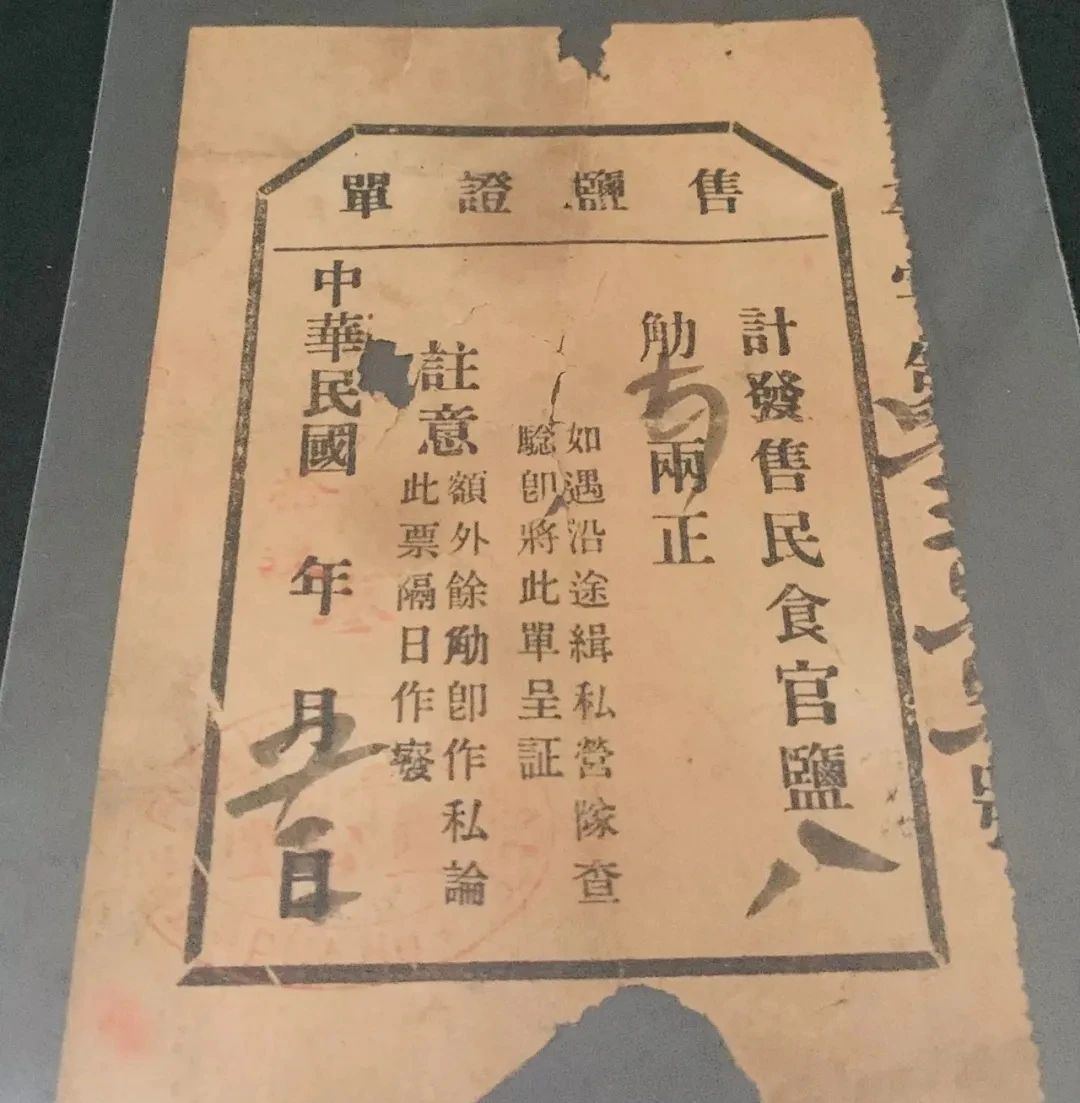 售鹽證單
計發售民食官鹽八
觔兩正
如遇沿途緝私營隊查
騐卽將此單呈証
註意
額外餘觔卽作私論
此票隔日作廢
中華民國 年 月 日